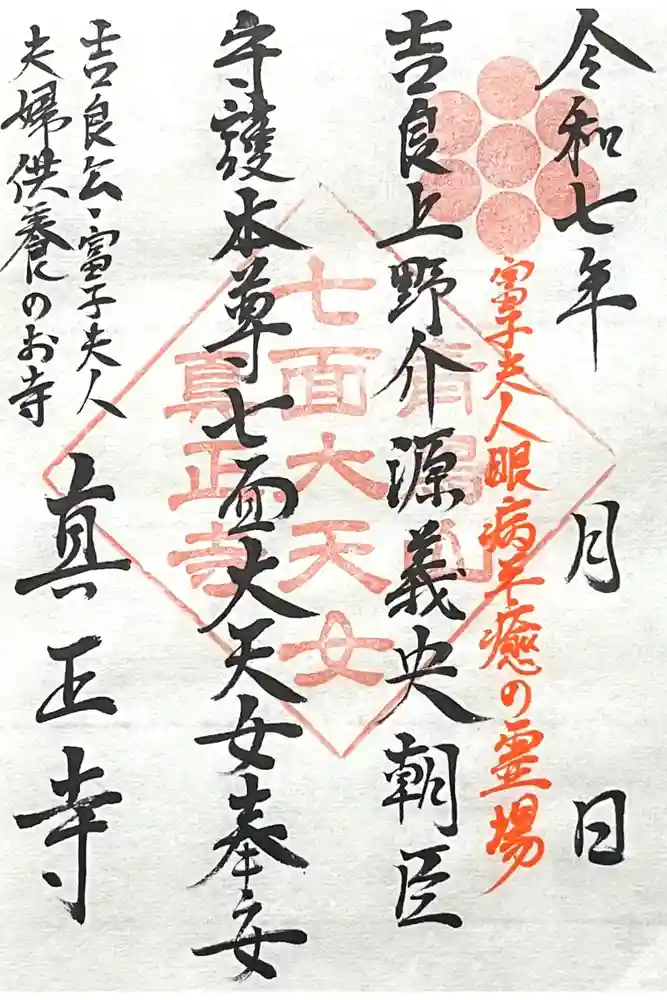 令和七年 月 日
富子夫人眼病平癒の霊場
吉良上野介源義央朝臣
守護本尊七面大天女奉安
吉良公、富子夫人
夫婦供養のお寺
真正寺
七面大天女
真正寺